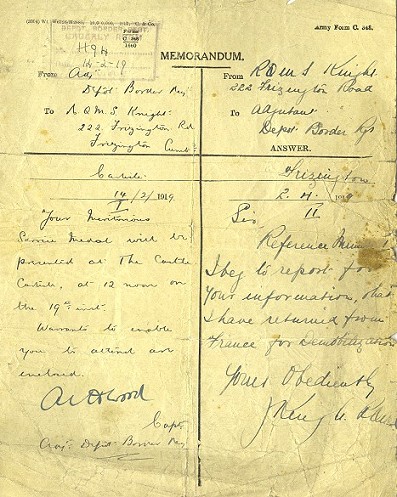 Army Form C. 348.
DEPOT, BORDER REGT.
MEMORANDUM.
From Adj
Depôt Border Reg
To R Q M S Knight
222 Frizington Rd
Frizington
Cumb
Carlisle
14/2/1919
I
Your Meritorious
Service Medal will be
presented at The Castle
Carlisle, at 12 noon on
the 19th inst.
Warrants to enable
you to attend are
enclosed.
Capt
Adjt Depôt Border Reg
From R Q M S Knight
222 Frizington Road
To Adjutant
Depot Border Rgt
ANSWER.
Frizington
1919
II
Sir
Reference Minute 1
I beg to report for
Your information, that
I have returned from
France for Demobilization
Yours Obediently